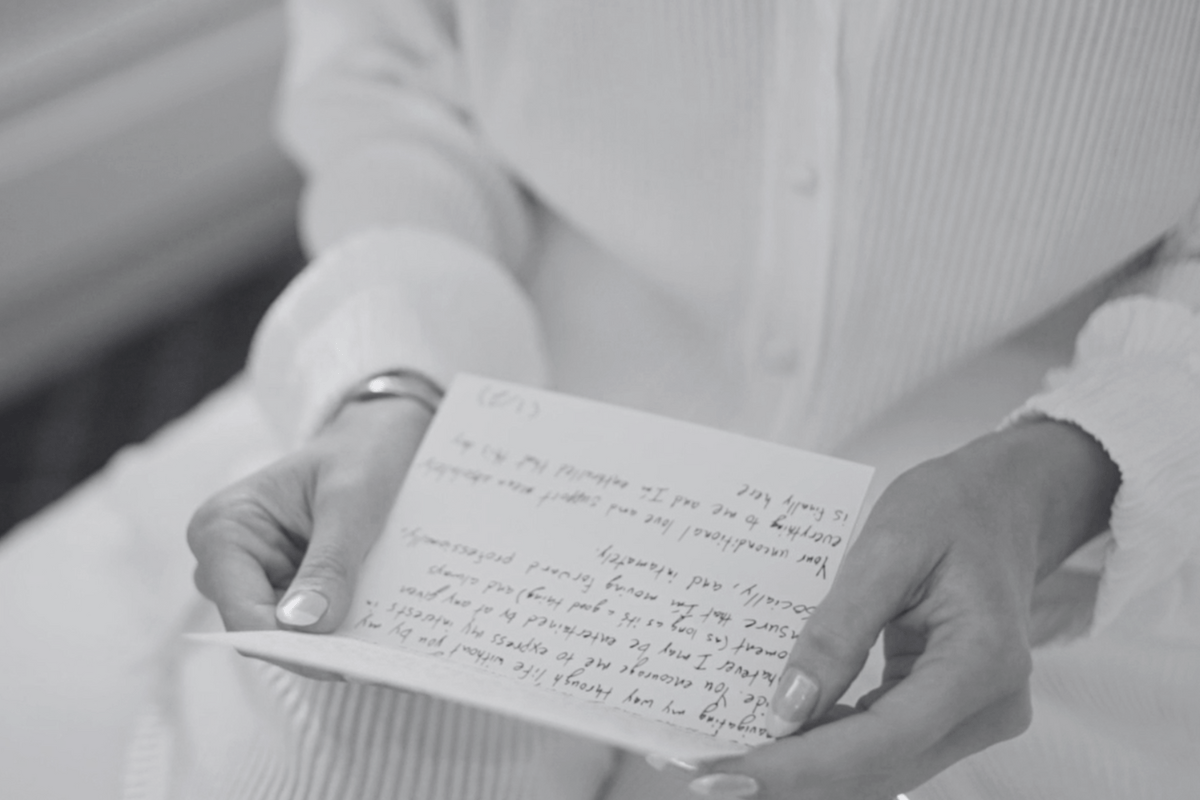 navigating my way through life without you by my
ide. You encourage me to express my interests in
hatever I may be entertained by at any given
oment (as long as it's a good thing) and always
nsure that I'm moving forward professionally,
socially, and intamately.
Your unconditional love and support mean absolutely
everything to me and I'm enthralled that this day
is finally here